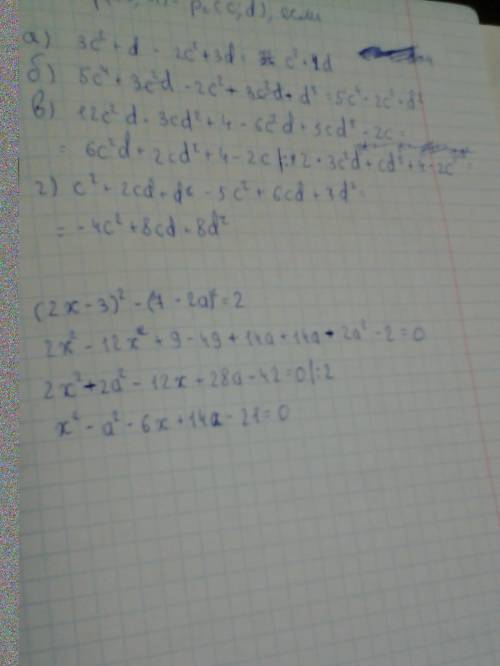 p₂(c,d), если
а) 3c² + d - 2c² + 3d = c² + 4d
б) 5c⁴ + 3c²d - 2c² + 3c²d + d² = 5c⁴ - 2c² + d²
в) 12c²d - 3cd² + 4 - 6c²d + 5cd² - 2c =
= 6c²d + 2cd² + 4 - 2c |:2 = 3c²d + cd² + 4 - 2c
г) c² + 2cd + d² - 5c² + 6cd + 7d² =
= -4c² + 8cd + 8d²
(2x - 3)² - (7 - 2a)² = 2
2x² - 12x + 9 - 49 + 14a + 14a - 2a² - 2 = 0
2x² - 2a² - 12x + 28a - 42 = 0 |:2
x² - a² - 6x + 14a - 21 = 0